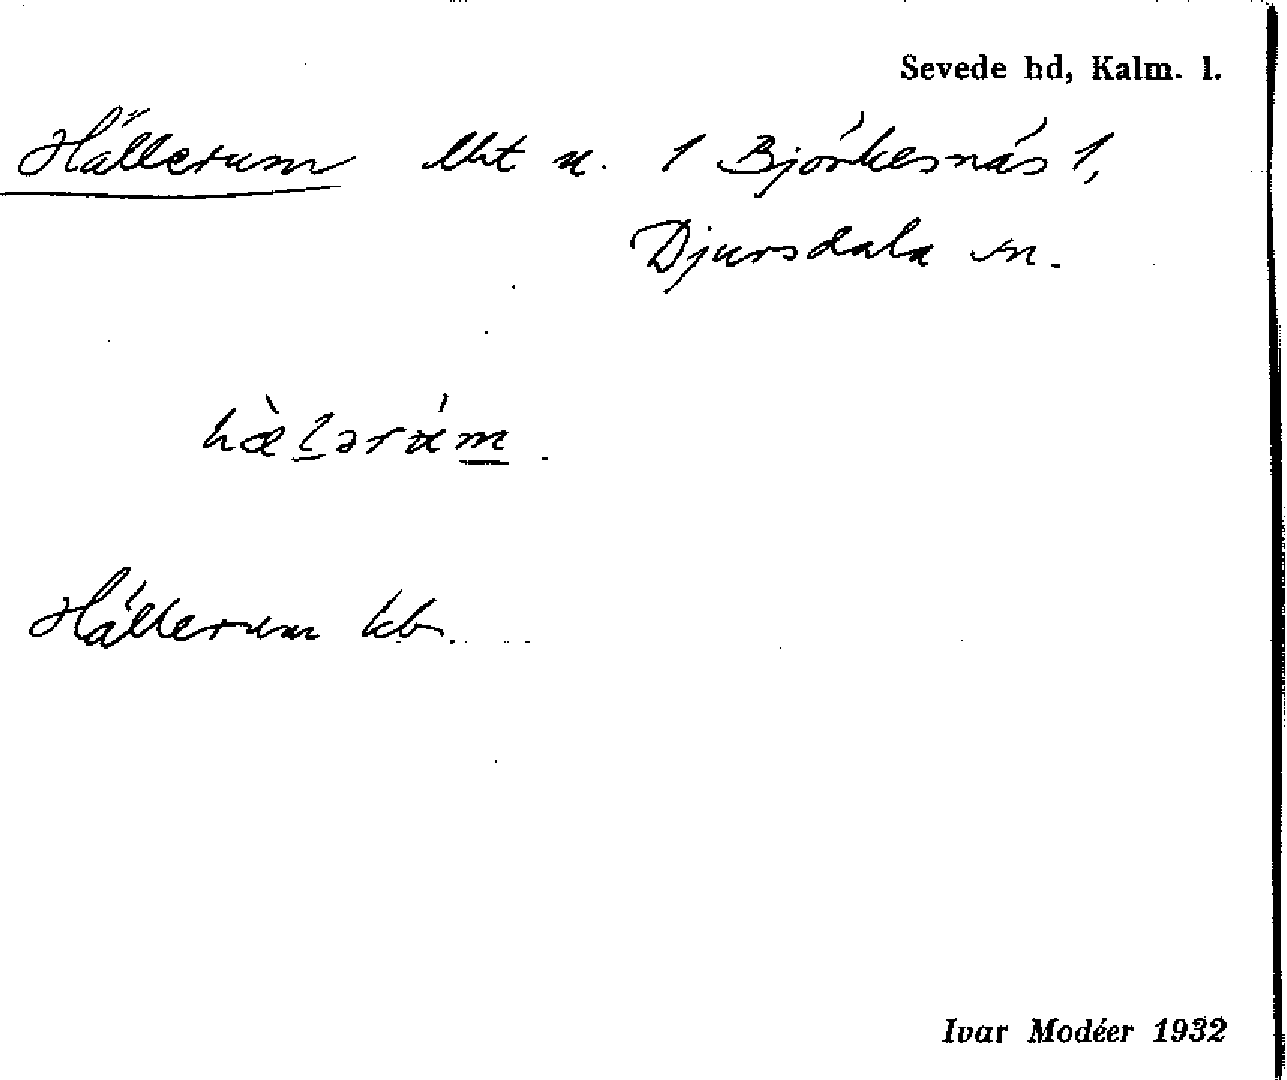 Sevede hd, Kalm. l.
Hällerum lht u. 1 Björkesnäs 1,
Djursdala sn.
hæ̀l̲ərúm̲.
Hällerum kb.
Ivar Modéer 1932